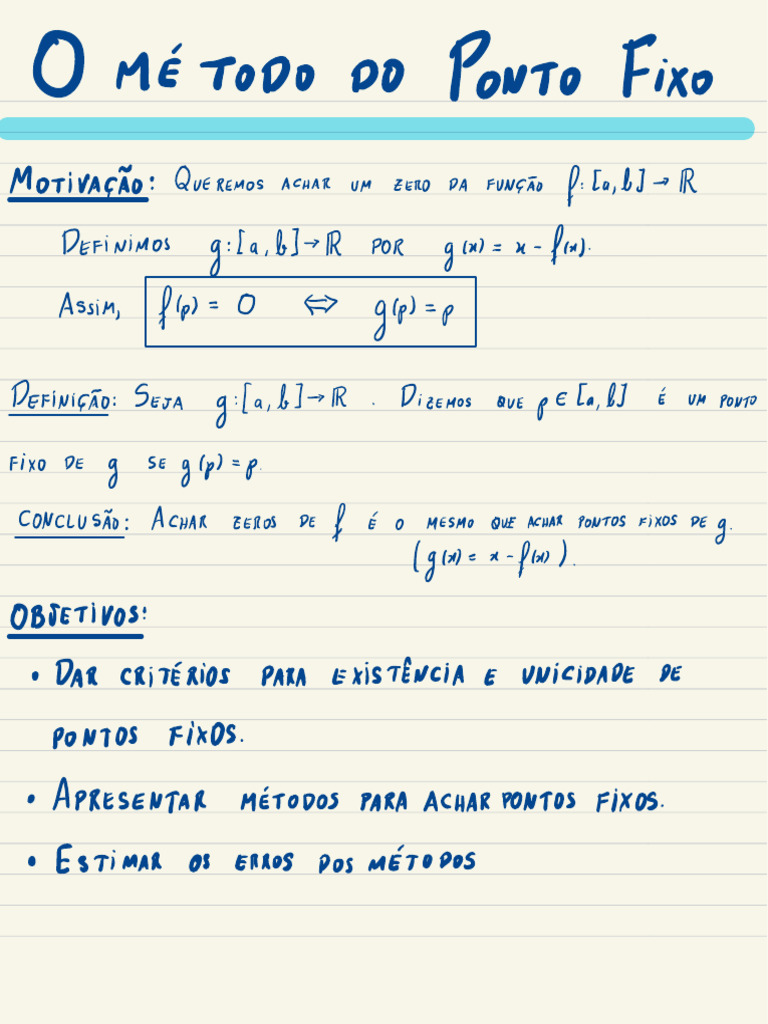 O MÉTODO DO PONTO FIXO
MOTIVAÇÃO: QUEREMOS ACHAR UM ZERO DA FUNÇÃO f: [a, b] → ℝ
DEFINIMOS g: [a, b] → ℝ POR g(x) = x - f(x).
ASSIM, f(p) = 0 ⇔ g(p) = p
DEFINIÇÃO: SEJA g: [a, b] → ℝ. DIZEMOS QUE p ∈ [a, b] É UM PONTO
FIXO DE g SE g(p) = p.
CONCLUSÃO: ACHAR ZEROS DE f É O MESMO QUE ACHAR PONTOS FIXOS DE g.
(g(x) = x - f(x)).
OBJETIVOS:
• DAR CRITÉRIOS PARA EXISTÊNCIA E UNICIDADE DE
PONTOS FIXOS.
• APRESENTAR MÉTODOS PARA ACHAR PONTOS FIXOS.
• ESTIMAR OS ERROS DOS MÉTODOS